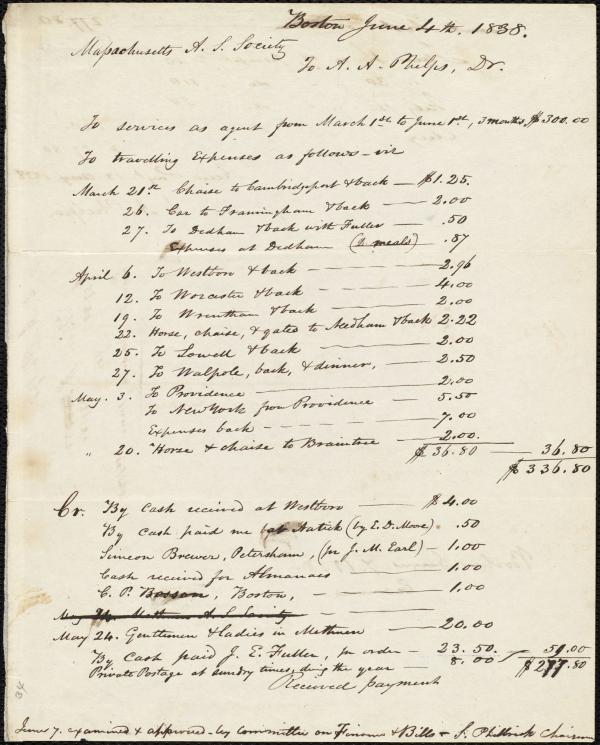 Boston June 4th. 1838.
Massachusetts A. S. Society
To A. A. Phelps, Dr.
To services as agent from March 1st to June 1st, 3 months, $300.00
To travelling Expenses as follows - viz
March 21st Chaise to Cambridgeport & back — $1.25.
26. Car to Framingham & back — 2.00
27. To Dedham & back with Fuller — .50
Expenses at Dedham (2 meals) — .87
April 6. To Westboro & back — 2.96
12. To Worcester & back — 4.00
19. To Wrentham & back — 2.00
22. Horse, chaise, & gates to Needham & back 2.22
25. To Lowell & back — 2.00
27. To Walpole, back, & dinner, — 2.50
May. 3. To Providence — 2.00
To New York from Providence — 5.50
Expenses back — 7.00
" 20. "Horse & chaise to Braintree — 2.00.
$36.80 — 36.80
$336.80
Cr. By Cash received at Westboro — $4.00
By Cash paid me at Natick (by E. D. Moore) .50
Simeon Brewer, Petersham, (pr J. M. Earl) — 1.00
Cash received for Almanacs — 1.00
C. P. Bosson, Boston, — 1.00
May 24. Methuen A. S. Society —
May 24. Gentlemen & ladies in Methuen — 20.00
By Cash paid J. E. Fuller, pr order — 23.50. — 51.00
Private Postage at sundry times, during the year — 8.00 $277.80
Received payment
June 7. examined & approved by committee on Finance & Bills - S. Philbrick Chairman
34